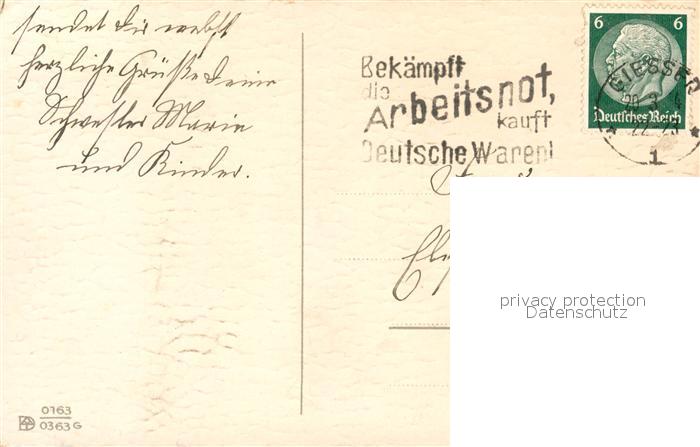 sendet dir nebst
herzliche Grüße deine
Schwester Marie
und Kinder.
Bekämpft
die
Arbeitsnot,
kauft
Deutsche Waren!
6 6
Deutsches Reich
GIESSEN
22-23
1
privacy protection
Datenschutz
0163
0363 G